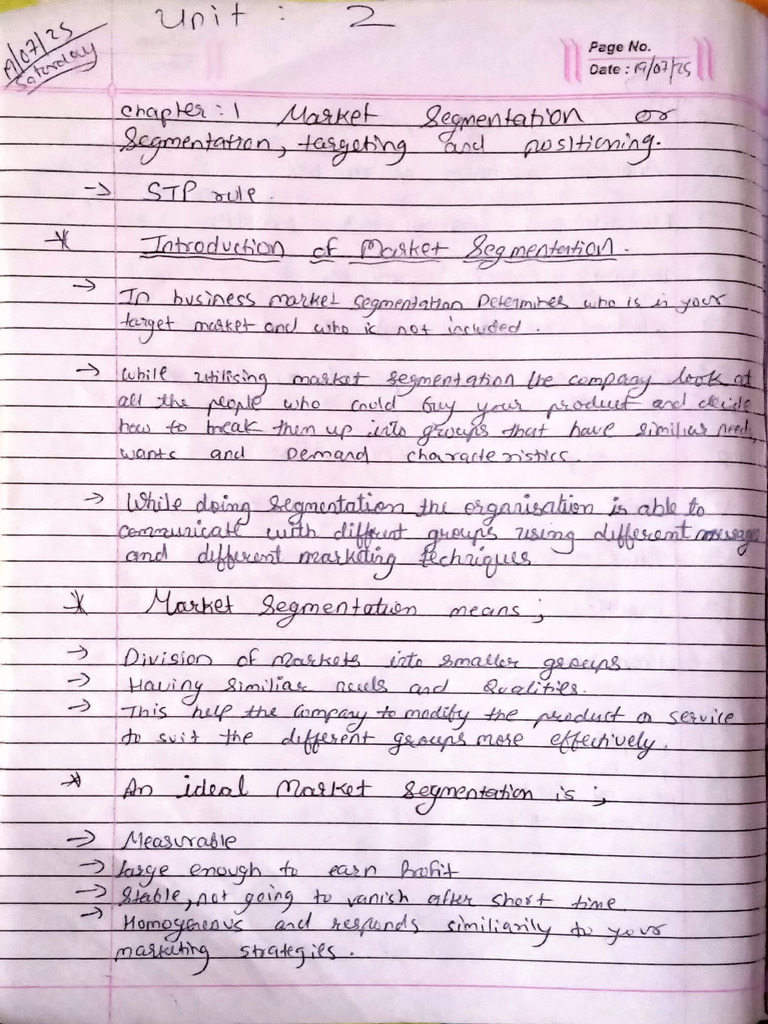 Unit : 2
19/07/25
Saturday
Page No.
Date : 19/07/25
chapter : 1 Market Segmentation or
Segmentation, targeting and positioning.
→ STP rule.
* Introduction of Market Segmentation.
→ In business market segmentation Determines who is in your
target market and who is not included.
→ While utilising market segmentation the company look at
all the people who could buy your product and decide
how to break them up into groups that have similiar need,
wants and Demand characteristics.
→ While doing segmentation the organisation is able to
communicate with different groups using different message
and different marketing techniques
* Market Segmentation means ;
→ Division of Markets into smaller groups.
→ Having similiar needs and Qualities.
→ This help the Company to modify the product or service
to suit the different groups more effectively.
* An ideal Market Segmentation is ;
→ Measurable
→ large enough to earn Profit
→ Stable, not going to vanish after short time
→ Homogenous and responds similiarily to your
marketing strategies.